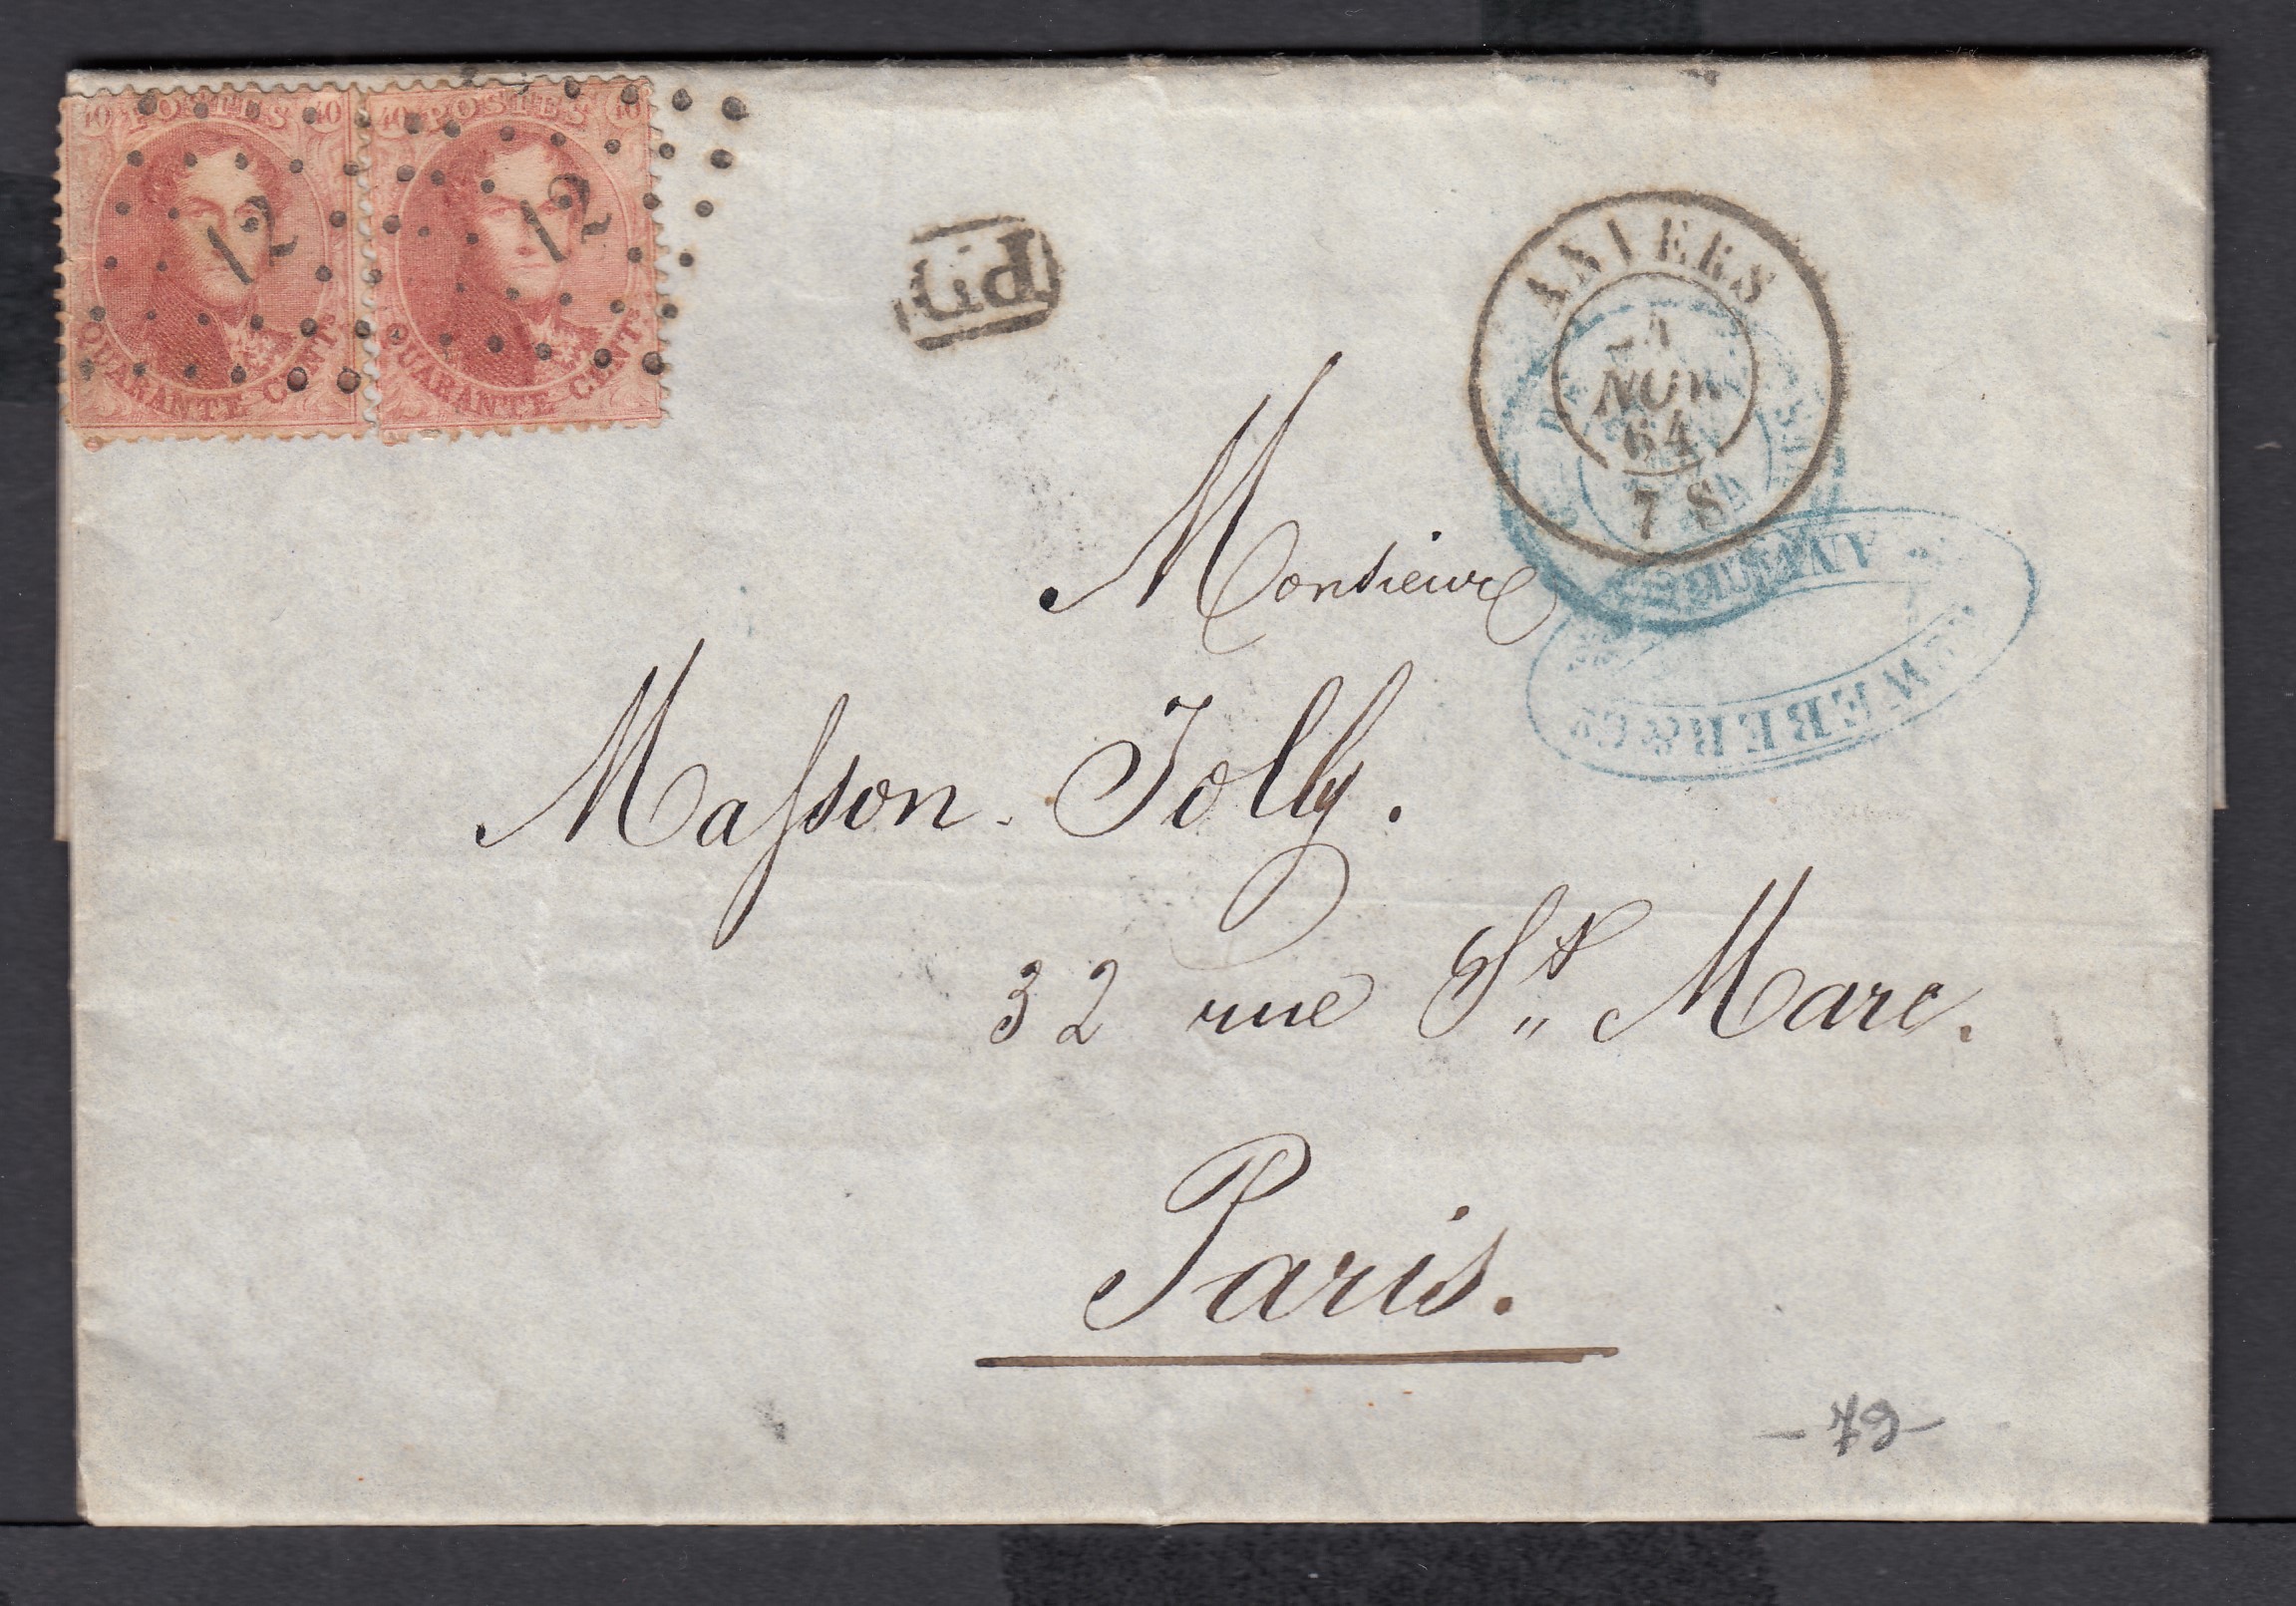 40 POSTES 40
QUARANTE CENT.
12
40 POSTES 40
QUARANTE CENT.
12
PD
ANVERS
NOV
64
7 S
WEBER & Cº
ANVERS
Monsieur
Masson-Jolly.
32 rue St. Marc.
Paris.
-79-